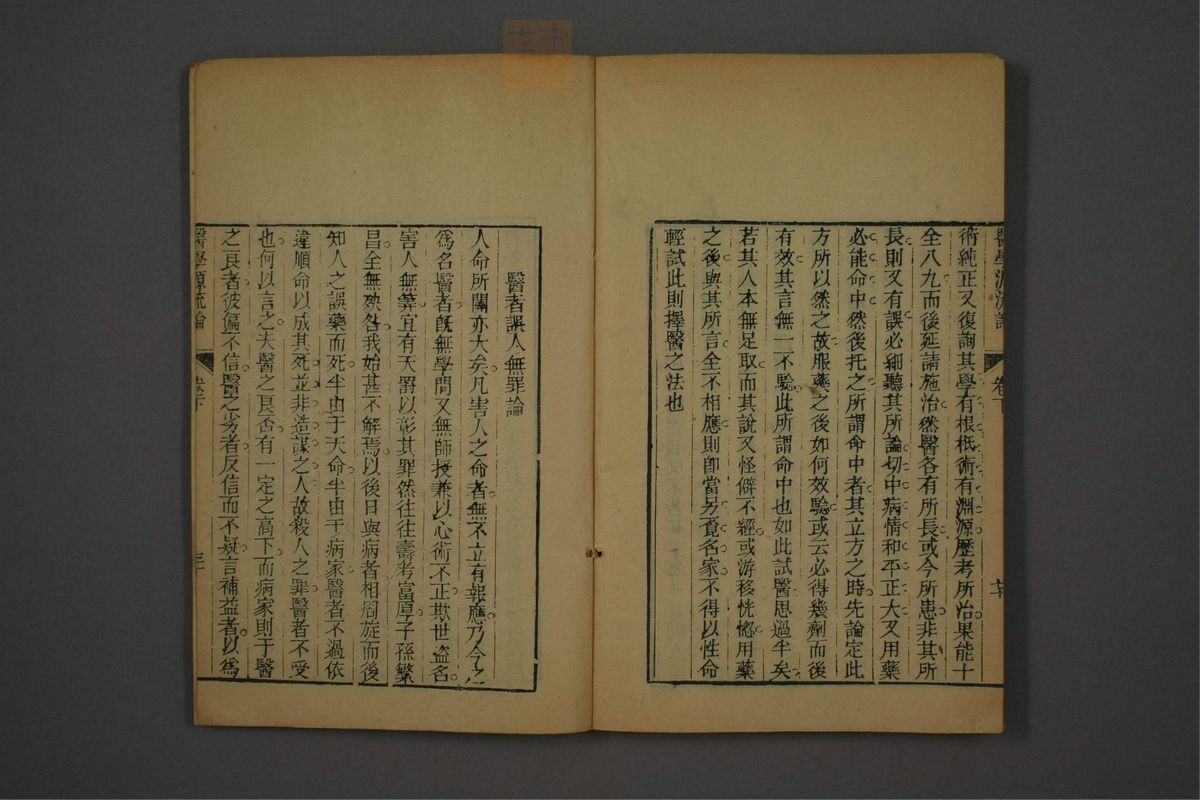 術純正又復詢其學有根柢術有淵源歷考所治果能十
全八九而後延請施治然醫各有所長或今所患非其所
長則又有誤必細聽其所論切中病情和平正大又用藥
必能命中然後托之所謂命中者其立方之時先論定此
方所以然之故服藥之後如何效驗或云必得幾劑而後
有效其言無一不驗此所謂命中也如此試醫思過半矣
若其人本無足取而其說又怪僻不經或游移恍惚用藥
之後與其所言全不相應則卽當另覓名家不得以性命
輕試此則擇醫之法也
醫者誤人無罪論
人命所關亦大矣凡害人之命者無不立有報應乃今之
爲名醫者旣無學問又無師授兼以心術不正欺世盜名
害人無筭宜有天罰以彰其罪然往往壽考富厚子孫繁
昌全無殃咎我始甚不解焉以後日與病者相周旋而後
知人之誤藥而死半由于天命半由于病家醫者不過依
違順命以成其死並非造謀之人故殺人之罪醫者不受
也何以言之夫醫之良否有一定之高下而病家則于醫
之良者彼偏不信醫之劣者反信而不疑言補益者以爲
醫學源流論 卷下 三十